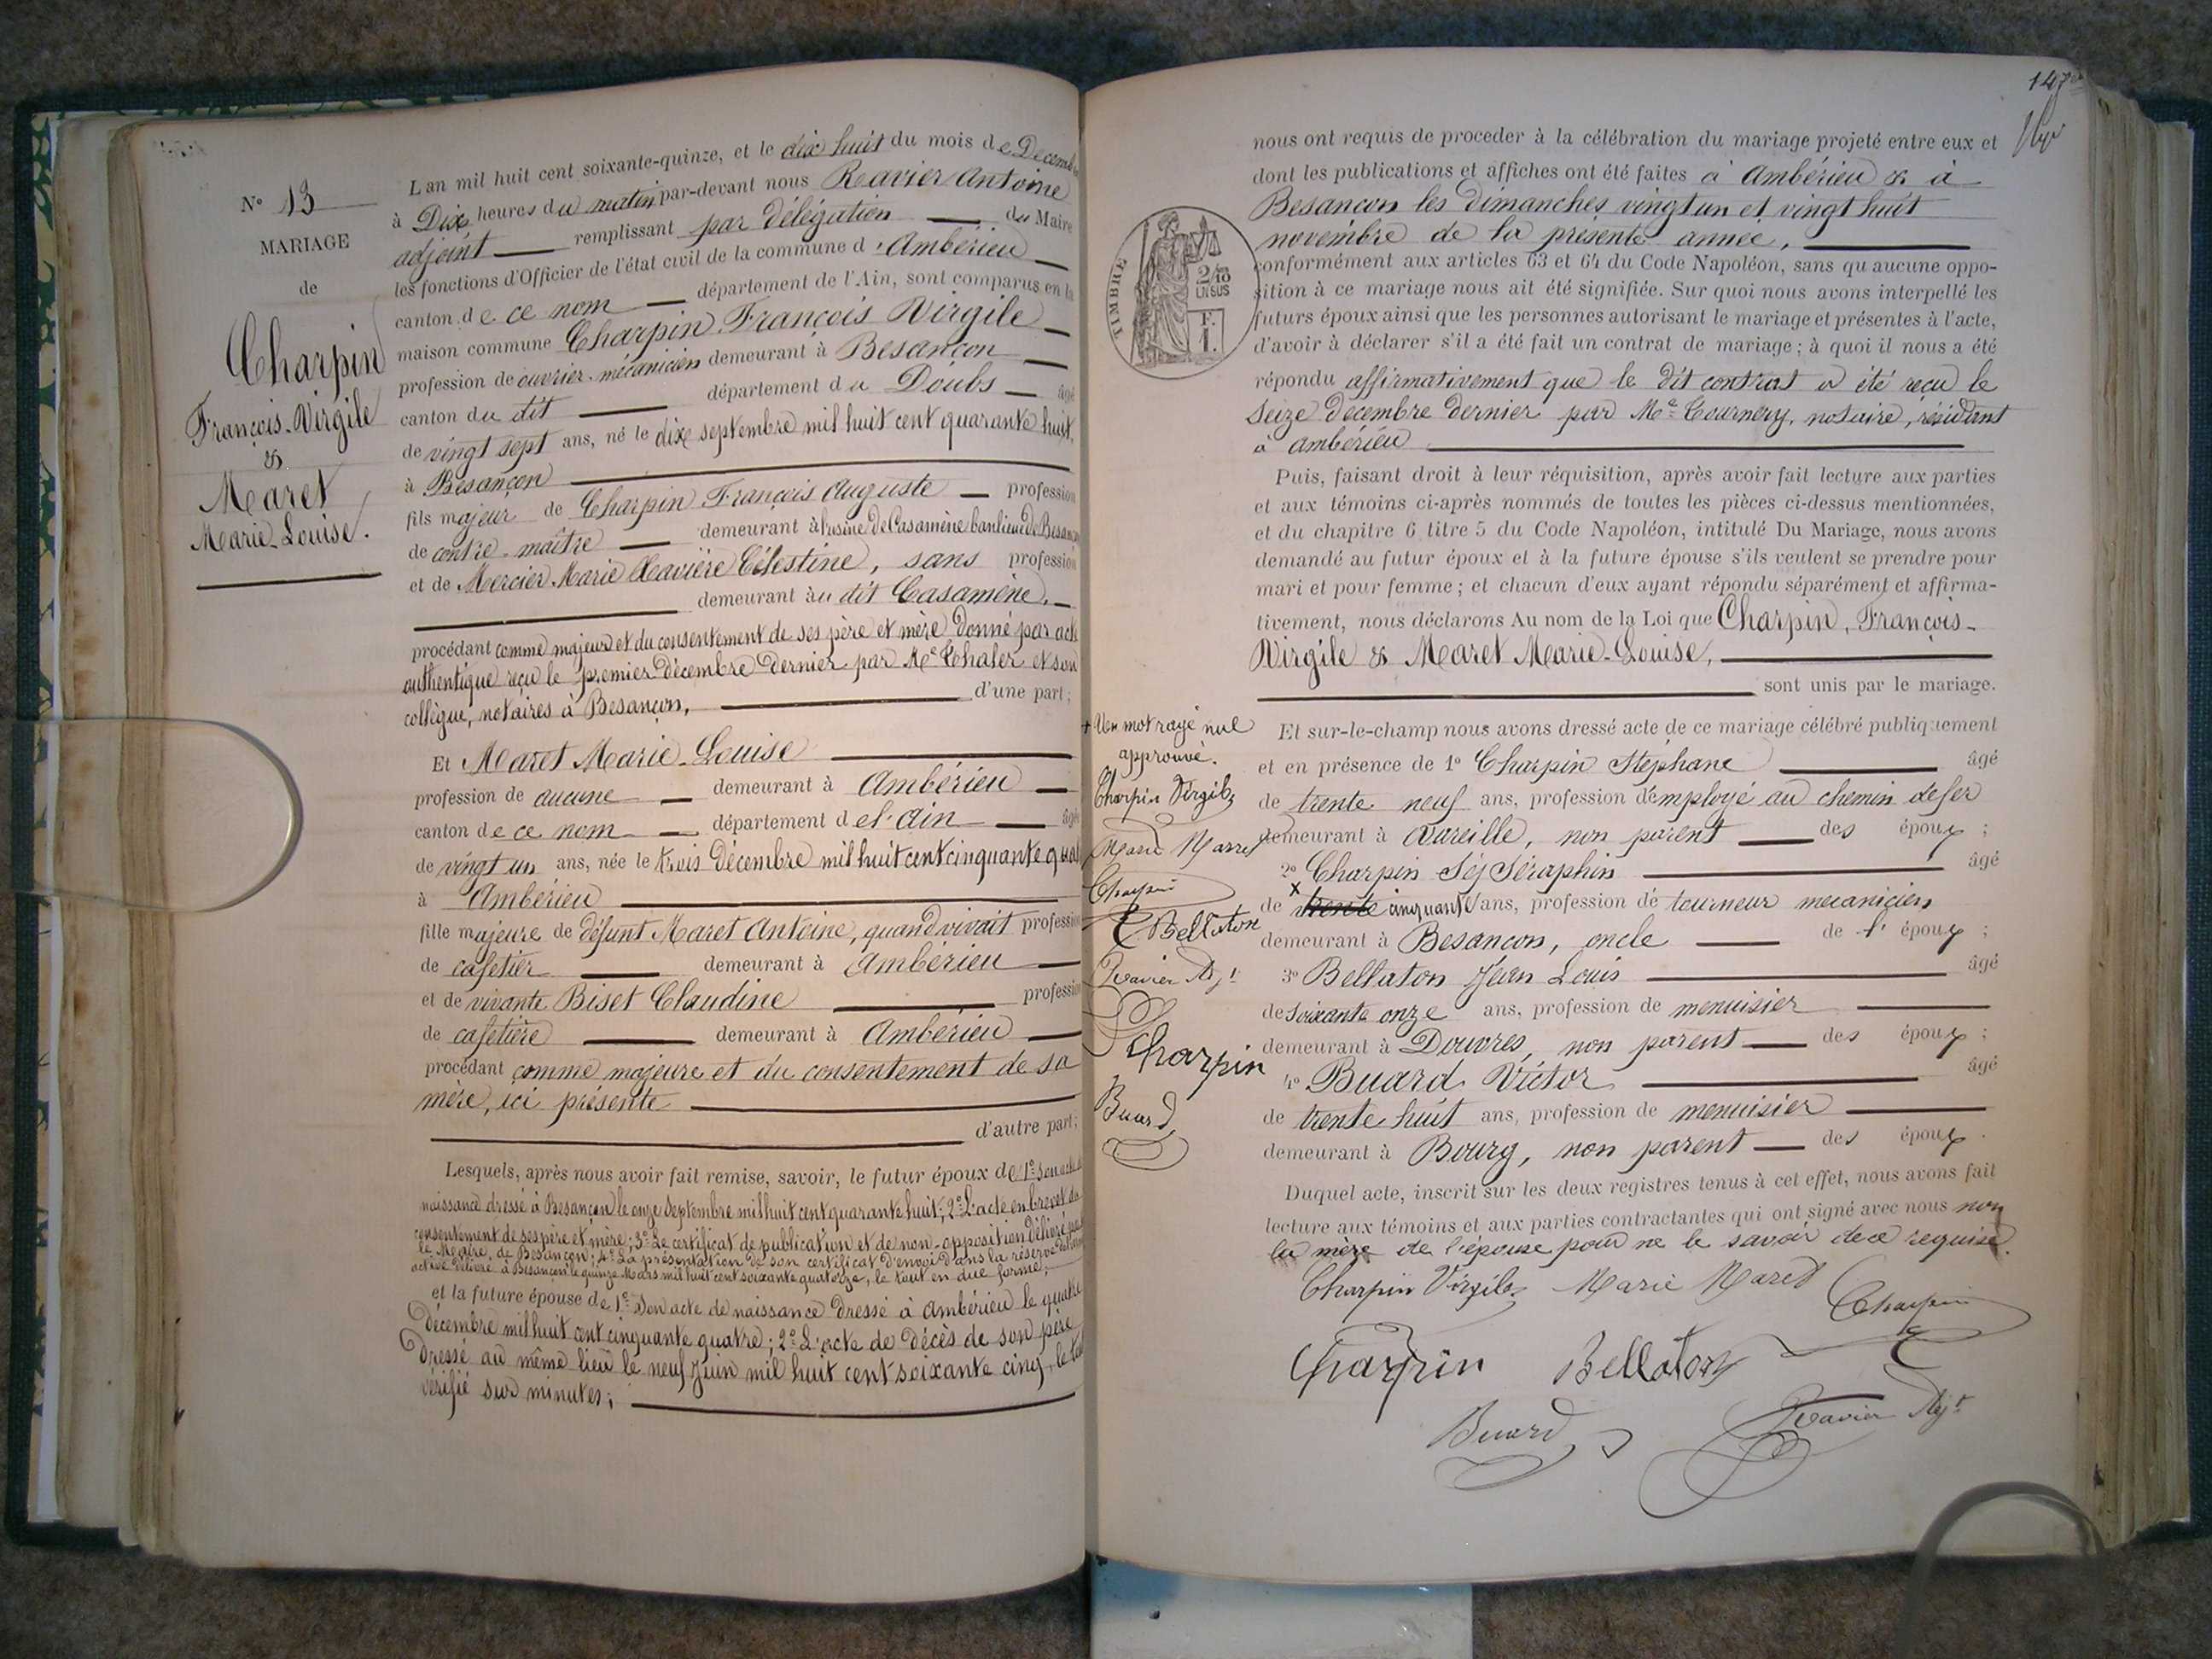 N° 13
MARIAGE
de
Charpin
François-Virgile
&
Maret
Marie-Louise.
L'an mil huit cent soixante-quinze, et le dix huit du mois de Decembre
à Dix heures du matin par-devant nous Ravier Antoine
adjoint remplissant par délégation du Maire
les fonctions d'Officier de l'état civil de la commune d'Ambérieu
canton de ce nom département de l'Ain, sont comparus en la
maison commune Charpin François Virgile
profession de ouvrier-mécanicien demeurant à Besançon
canton du dit département du Doubs âgé
de vingt sept ans, né le dix septembre mil huit cent quarante huit,
à Besançon
fils majeur de Charpin François Auguste profession
de contre-maître demeurant à l'usine de Casamène banlieue de Besançon
et de Mercier Marie Xavière Célestine, sans profession
demeurant au dit Casamène.
procédant comme majeur et du consentement de ses père et mère donné par acte
authentique reçu le premier Décembre dernier par Me Chaler et son
collègue, notaires à Besançon, d'une part;
Et Maret Marie-Louise
profession de aucune demeurant à Ambérieu
canton de ce nom département de l'ain âgée
de vingt un ans, née le trois Décembre mil huit cent cinquante quat
à Ambérieu
fille majeure de défunt Maret Antoine, quand vivait profession
de cafetier demeurant à Ambérieu
et de vivante Biset Claudine profession
de cafetière demeurant à Ambérieu
procédant comme majeure et du consentement de sa
mère, ici présente
d'autre part;
Lesquels, après nous avoir fait remise, savoir, le futur époux de 1° Son acte de
naissance dressé à Besançon le onze Septembre mil huit cent quarante huit; 2° L'acte en brevet du
consentement de ses père et mère; 3° Le certificat de publication et de non-opposition délivré par
le Maire de Besançon; 4° La présentation de son certificat d'envoi dans la réserve de l'armée
active délivré à Besançon le quinze Mars mil huit cent soixante quatorze, le tout en due forme;
et la future épouse de 1° Son acte de naissance dressé à Ambérieu le quatre
Décembre mil huit cent cinquante quatre; 2° L'acte de Décès de son père
Dressé au même lieu le neuf Juin mil huit cent soixante cinq, le tout
vérifié sur minutes;
147
nous ont requis de proceder à la célébration du mariage projeté entre eux et
dont les publications et affiches ont été faites à Ambérieu & à
Besançon les dimanches vingt un et vingt huit
novembre de la présente année,
TIMBRE
2/10 EN SUS
F. 1.
conformément aux articles 63 et 64 du Code Napoléon, sans qu'aucune oppo-
sition à ce mariage nous ait été signifiée. Sur quoi nous avons interpellé les
futurs époux ainsi que les personnes autorisant le mariage et présentes à l'acte,
d'avoir à déclarer s'il a été fait un contrat de mariage; à quoi il nous a été
répondu affirmativement que le dit contrat a été reçu le
Seize Décembre dernier par Me Tournery, notaire, résidant
à ambérieu
Puis, faisant droit à leur réquisition, après avoir fait lecture aux parties
et aux témoins ci-après nommés de toutes les pièces ci-dessus mentionnées,
et du chapitre 6 titre 5 du Code Napoléon, intitulé Du Mariage, nous avons
demandé au futur époux et à la future épouse s'ils veulent se prendre pour
mari et pour femme; et chacun d'eux ayant répondu séparément et affirma-
tivement, nous déclarons Au nom de la Loi que Charpin, François-
Virgile & Maret Marie-Louise,
sont unis par le mariage.
Et sur-le-champ nous avons dressé acte de ce mariage célébré publiquement
et en présence de 1° Charpin Stéphane âgé
de trente neuf ans, profession d'employé au chemin de fer
demeurant à Vareille, non parent des époux;
2° Charpin Séj Séraphin âgé
x
de trente cinquante ans, profession de tourneur mecanicien
demeurant à Besançon, oncle de l'époux;
3° Bellaton Jean Louis âgé
de soixante onze ans, profession de menuisier
demeurant à Douvres, non parent des époux;
4° Buard Victor âgé
de trente huit ans, profession de menuisier
demeurant à Bourg, non parent des époux.
Duquel acte, inscrit sur les deux registres tenus à cet effet, nous avons fait
lecture aux témoins et aux parties contractantes qui ont signé avec nous non
la mère de l'épouse pour ne le savoir de ce requise.
Charpin Virgile Marie Maret Charpin
Charpin Bellaton
Buard Ravier Adjt
+ Un mot rayé nul
approuvé.
Charpin Virgile
Marie Marret
Charpin
Bellaton
Ravier Adjt
Charpin
Buard